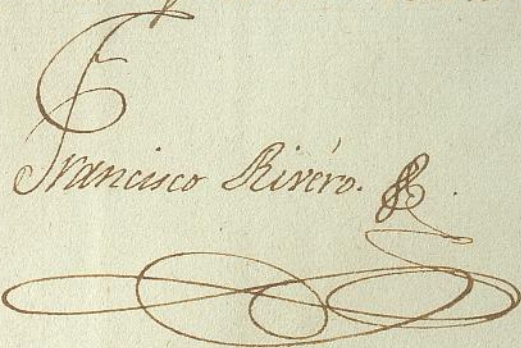 Francisco Rivéro.